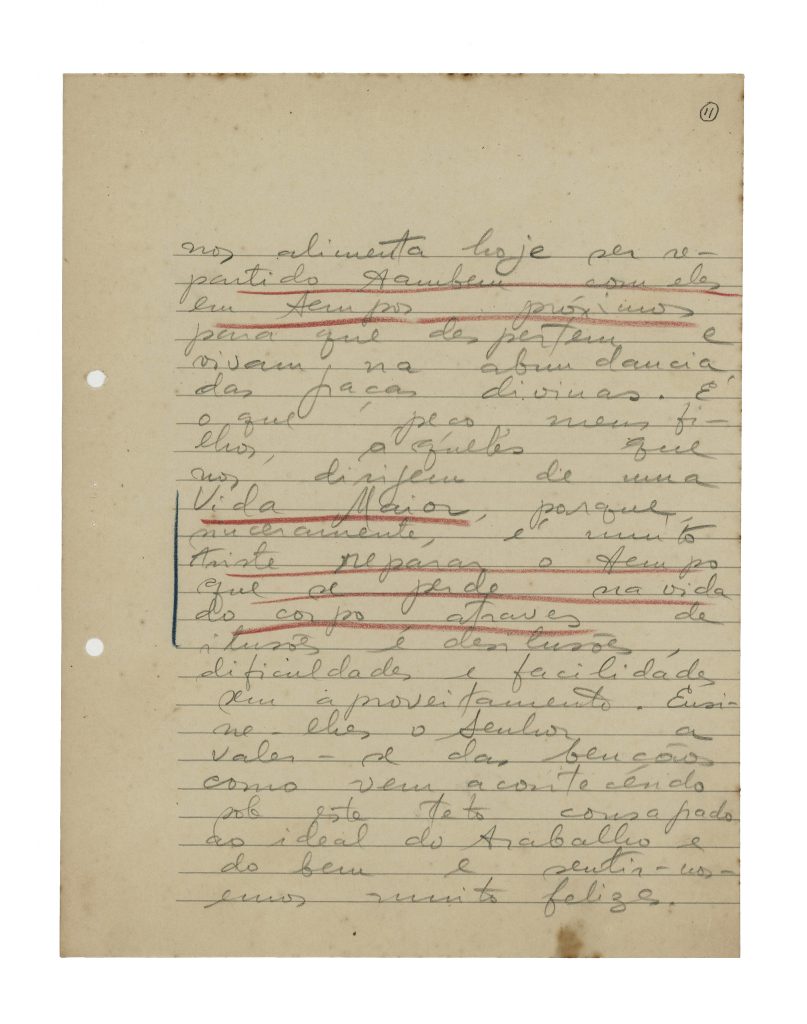 11
nos alimenta hoje ser re-
partido tambem com eles
em tempos próximos
para que despertem e
vivam, na abundancia,
das graças divinas. É
o que peço meus fi-
lhos, a quêles que
nos dirigem de uma
Vida Maior, porque,
sinceramente, é muito
triste reparar o tempo
que se perde na vida
do corpo atraves de
ilusões é desilusões,
dificuldades e facilidades
sem aproveitamento. Ensi-
ne-lhes o Senhor a
valer-se das bençãos
como vem acontecendo
sob este teto consagrado
ao ideal do trabalho e
do bem e sentir-nos-
emos muito felizes.